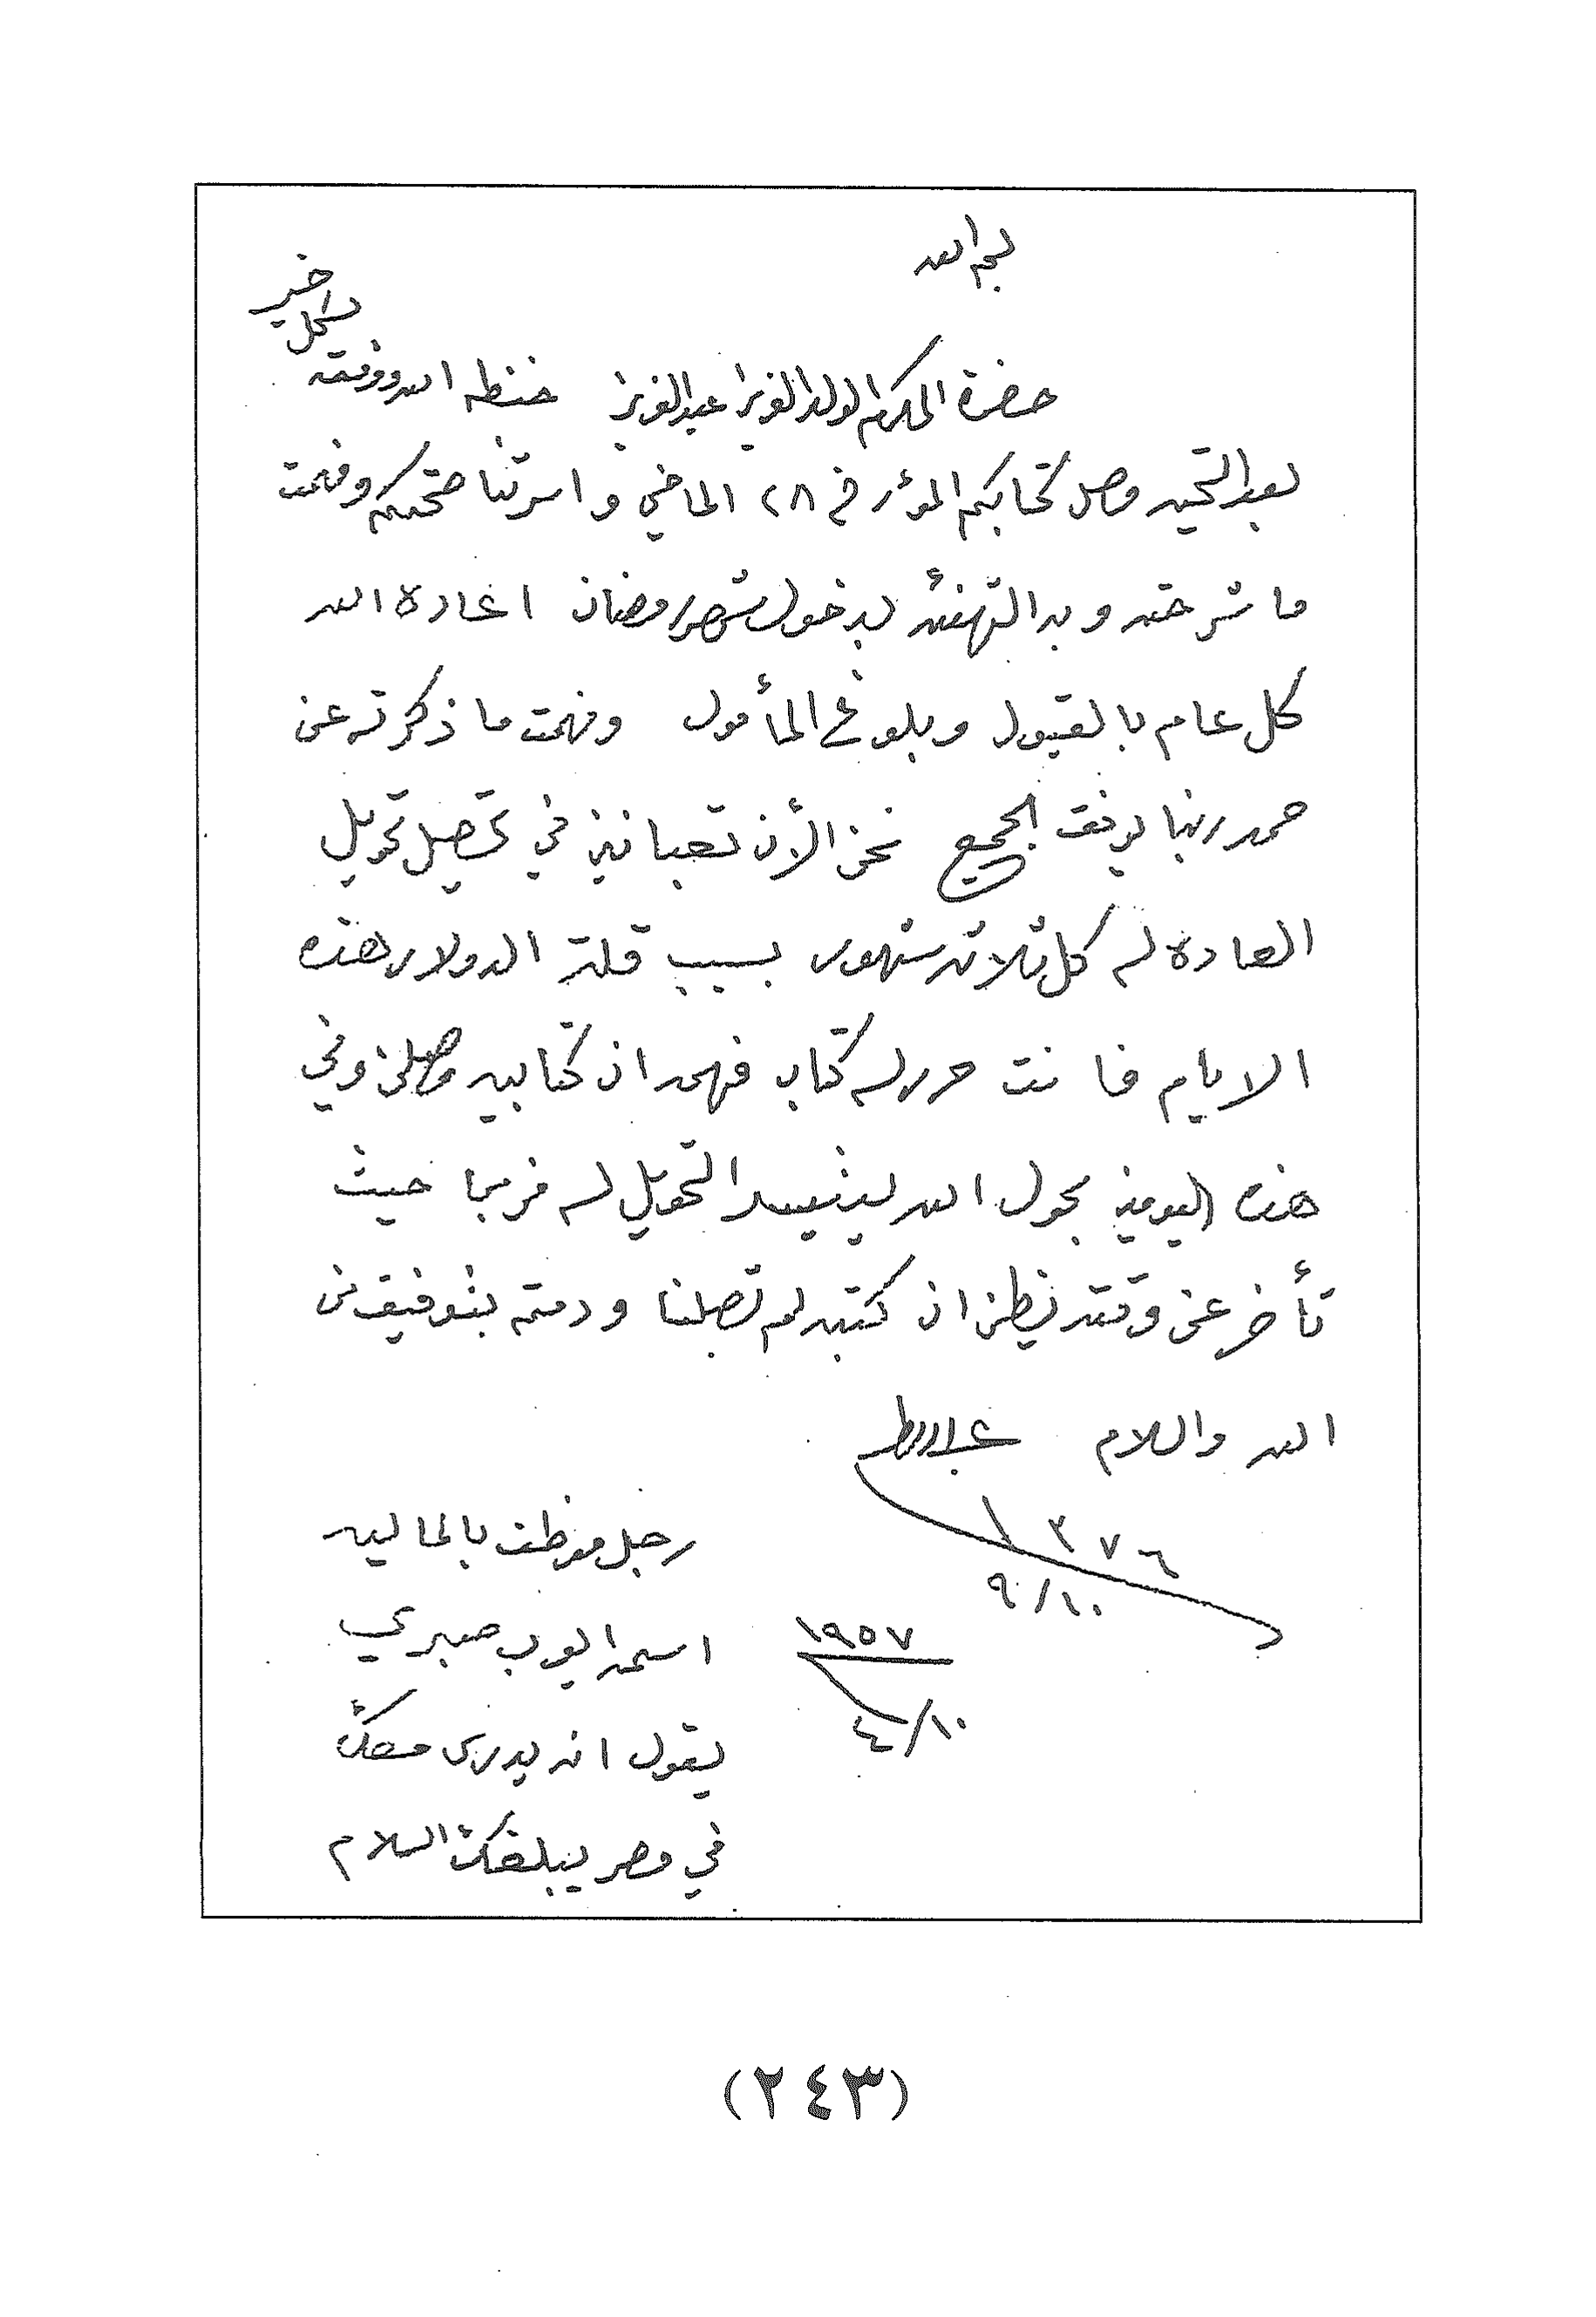 بسم الله
حضرة المكرم الولد العزيز عبدالعزيز حفظه الله ووفقه
لكل خير
بعد التحيه وصل كتابكم المؤرخ في ٢٨ الماضي واسرتنا صحتكم وفهمت
ما شرحته وبه التهنئه بدخول شهر رمضان اعاده الله
كل عام بالقبول وبلوغ المأمول وفهمت ما ذكرته عن
حمد ربنا يوفق الجميع نحن الأن تعبانين في تحصيل تحويل
العادة له كل ثلاثه شهور بسبب قلة الدولار هذه
الايام فانت حرر له كتاب فهمه ان كتابيه وصلن وفي
هذه اليومين بحول الله يتيسر التحويل له قريبا حيث
تأخر عن وقته يظن ان كتبه لم تصلنا ودمتم بتوفيق من
الله والسلام
١٣٧٦
٩/١٠
١٩٥٧
٤/١٠
رجل موظف بالماليه
اسمه ايوب صبري
يقول انه يدرس معك
في مصر يبلغك السلام
(٢٤٣)